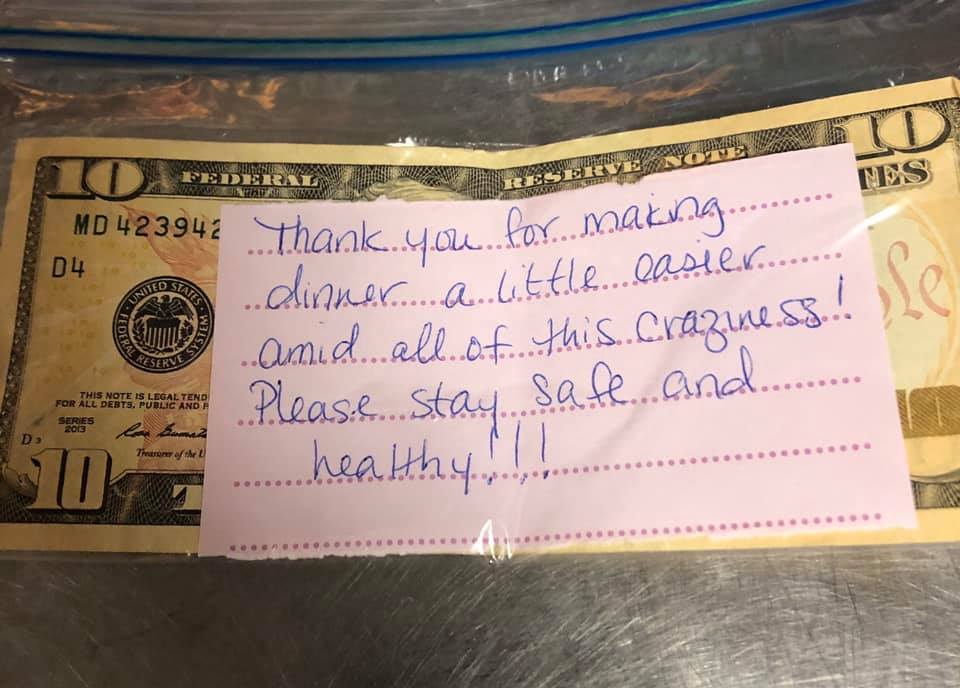 10
FEDERAL RESERVE NOTE
10
TES
MD 423942
D4
UNITED STATES
FEDERAL RESERVE SYSTEM
THIS NOTE IS LEGAL TEND
FOR ALL DEBTS, PUBLIC AND P
SERIES
2013
D3
Treasurer of the U
10
Thank you for making
dinner a little easier
amid all of this craziness!
Please stay safe and
healthy!!!